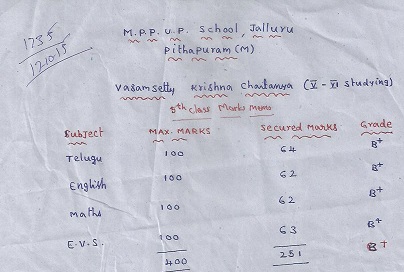 1735
17.10.15
M.P.P.U.P. School, Jalluru
Pithapuram (M)
Vasamsetty Krishna Chaitanya (V - VI studying)
5th class Marks Memo
Subject MAX. MARKS Secured Marks Grade
Telugu 100 64 B+
English 100 62 B+
Maths 100 62 B+
E.V.S. 100 63 B+
400 251 B+